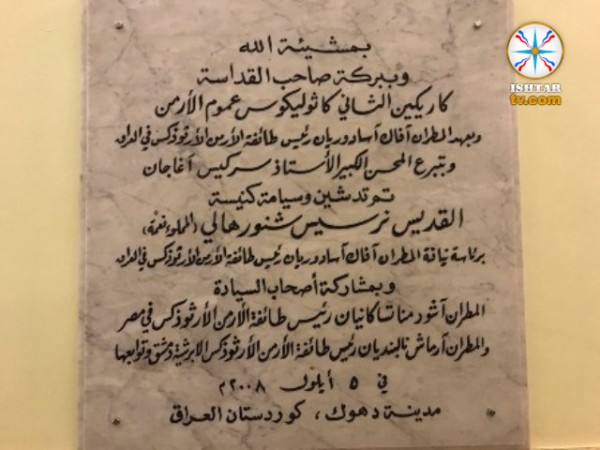 ISHTAR
tv.com
بمشيئة الله
وببركة صاحب القداسة
كاريكين الثاني كاثوليكوس عموم الأرمن
وبعهد المطران آفاك آسادوريان رئيس طائفة الأرمن الأرثوذكس في العراق
وبتبرع المحسن الكبير الأستاذ سركيس آغاجان
تم تدشين وسيامة كنيسة
القديس نرسيس شنورهالي (المملوء نعمة)
برئاسة نيافة المطران آفاك آسادوريان رئيس طائفة الأرمن الأرثوذكس في العراق
وبمشاركة أصحاب السيادة
المطران آشود مناتساكانيان رئيس طائفة الأرمن الأرثوذكس في مصر
والمطران آرماش نالبنديان رئيس طائفة الأرمن الأرثوذكس لأبرشية دمشق وتوابعها
في ٥ أيلول ٢٠٠٨م
مدينة دهوك، كوردستان العراق